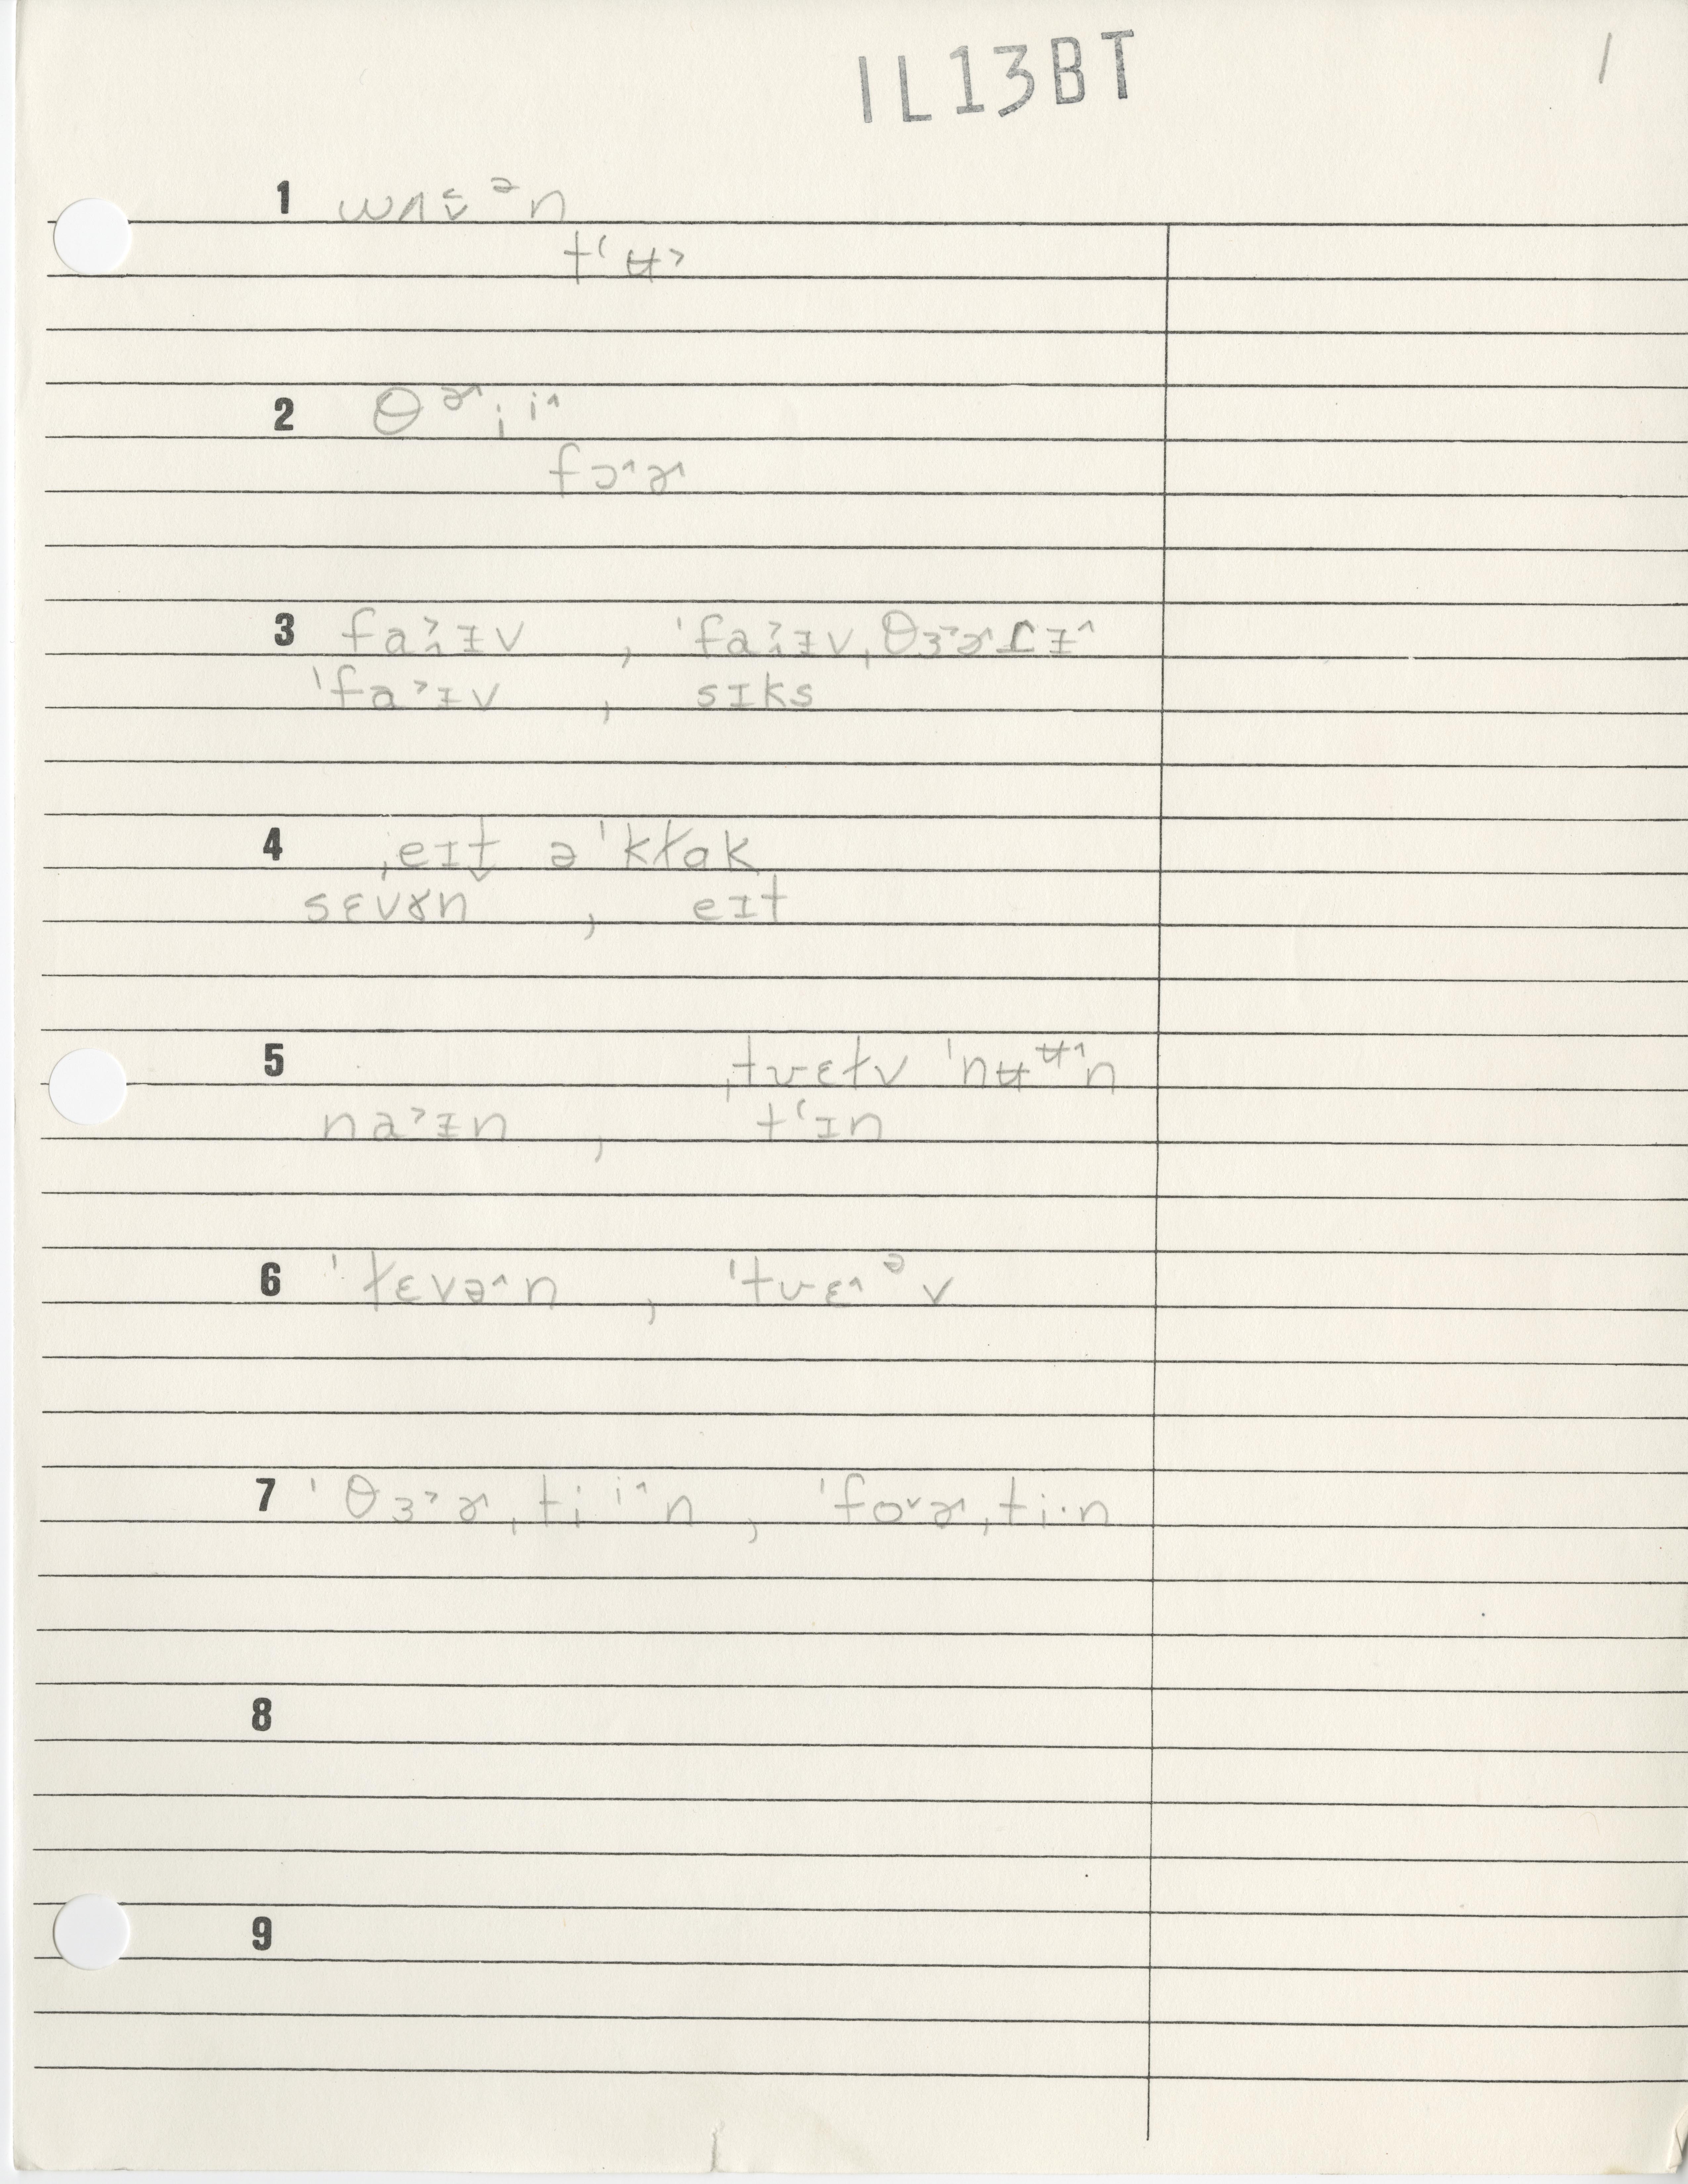 IL13BT 1
1 wʌ˂̬ᵊn
t‘ʉ˃
2 θᵊ˞˄i ⁱ˄
fɔ˄ɚ˄
3 fa˃ɪv , ˈfa˃ɪv ˌθɜ˃ɚ˄ɾɪ˄
ˈfa˃ɪv , sɪks
4 ˌeɪt̬ ə ˈkɫɑk
sɛvɤn , eɪt
5 ˌtʋɛɫv ˈnʉᶶ˄n
na˃ɪn , t‘ɪn
6 ˈɫɛvə˄n , ˈtʋɛ˄ᵊv
7 ˈθɜ˃ɚ˄ˌtiⁱ˄n , ˈfo˅ɚ˄ˌti·n
8
9